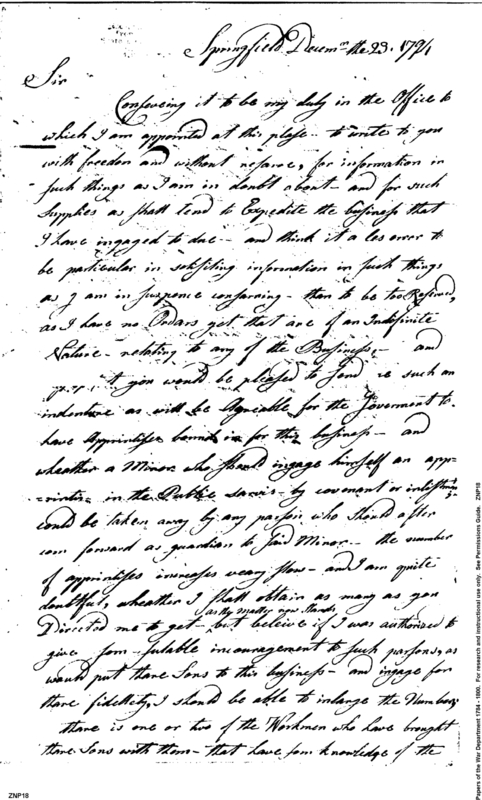 Springfield Decemr the 23. 1794
Sir
Conseveing it to be my duty in the Office to
which I am appointed at this plase - to write to you
with freedom and without resarve, for information in
such things as I am in doubt about - and for such
supplies as shall tend to Expedite the business that
I have ingaged to due - and think it a les error to
be particular in in such things
as I am in suspence consarning - than to be too Reserved,
as I have no Ordars yet that are of an Indefinite
Nature - relating to any of the Business, - and
you would be pleased to send such an
indenture as will be Agreable for the Goverment to
have Apprintises bound in for this business - and
wheather a Minor who should ingage himself an app-
in the Public sarvis - by covenant or
could be taken away by any parson who should after
com forward as guardian to said Minor - the number
of apprintises increses veary slow - and I am quite
doubtful, wheather I shall obtain as many as you
as the matter now stands
Directed me to get - but beleive if I was authorised to
give som sutable incouragement to such parsons, as
would put there Sons to this business - and ingage for
there fidellety, I should be able to inlarge the Number,
there is one or two of the Workmen who have brought
there Sons with them - that have som knowledge of the
ZNP18
Papers of the War Department 1784 - 1800. For research and instructional use only. See Permissions Guide. ZNP18